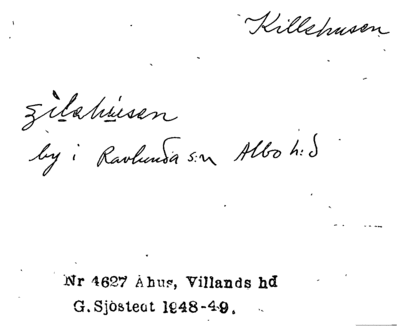 Killshusen
by i Ravlunda s:n Albo h:d
Nr 4627 Åhus, Villands hd
G. Sjöstedt 1948-49.